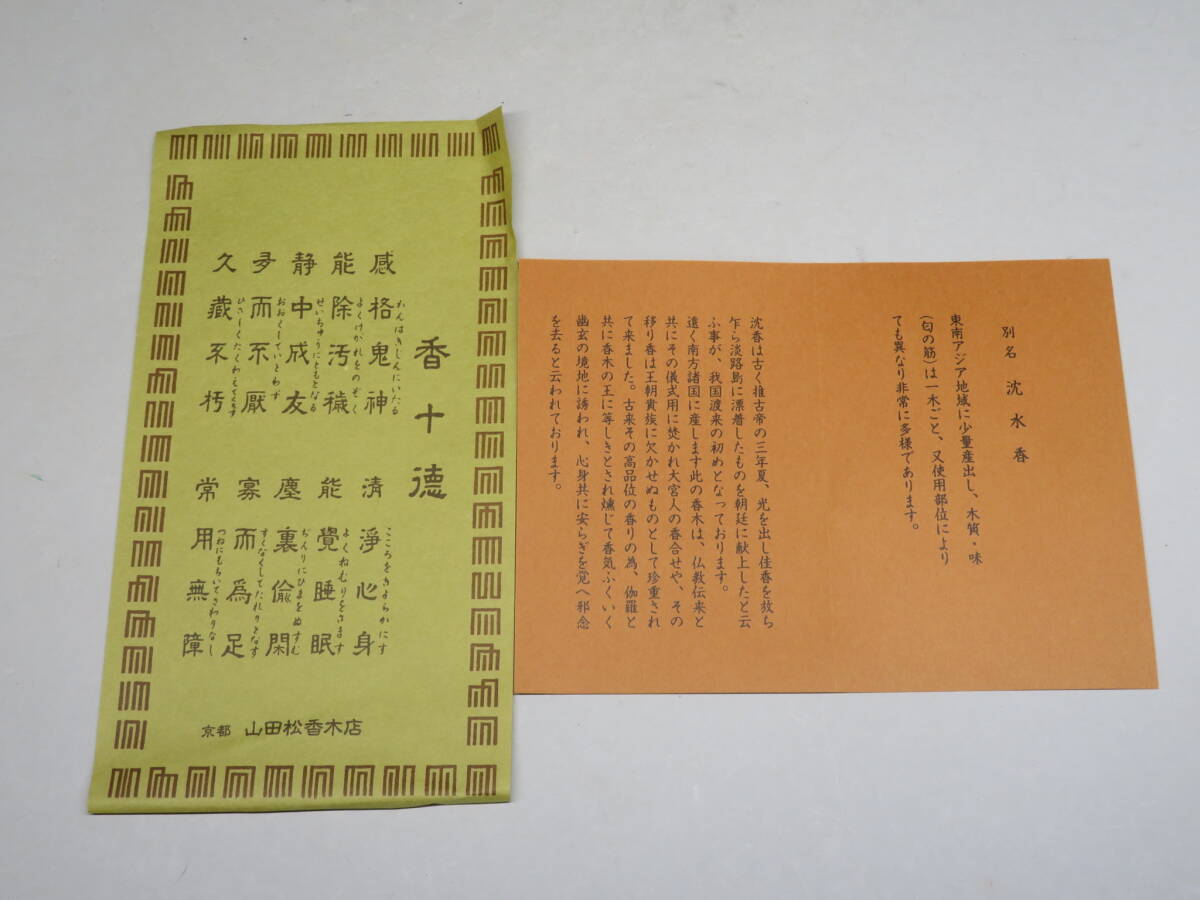 香十徳
感格鬼神
かんはきじんにいたる
能除汚穢
よくけがれをのぞく
静中成友
せいちゅうにともとなる
多而不厭
おおくしていとわず
久藏不朽
ひさしくたくわえてくちず
清淨心身
こころをきよらかにす
能覺睡眠
よくねむりをさます
塵裏偸閑
ぢんりにひまをぬすむ
寡而為足
すくなくしてたれりとなす
常用無障
つねにもちいてさわりなし
京都 山田松香木店
別名 沈水香
東南アジア地域に少量産出し、木質・味
（匂の筋）は一木ごと、又使用部位により
ても異なり非常に多様であります。
沈香は古く推古帝の三年夏、光を出し佳香を放ち
乍ら淡路島に漂着したものを朝廷に献上したと云
ふ事が、我国渡来の初めとなっております。
遠く南方諸国に産します此の香木は、仏教伝来と
共にその儀式用に焚かれ大宮人の香合せや、その
移り香は王朝貴族に欠かせぬものとして珍重され
て来ました。古来その高品位の香りの為、伽羅と
共に香木の王に等しきとされ燻じて香気ふくいく
幽玄の境地に誘われ、心身共に安らぎを覚へ邪念
を去ると云われております。